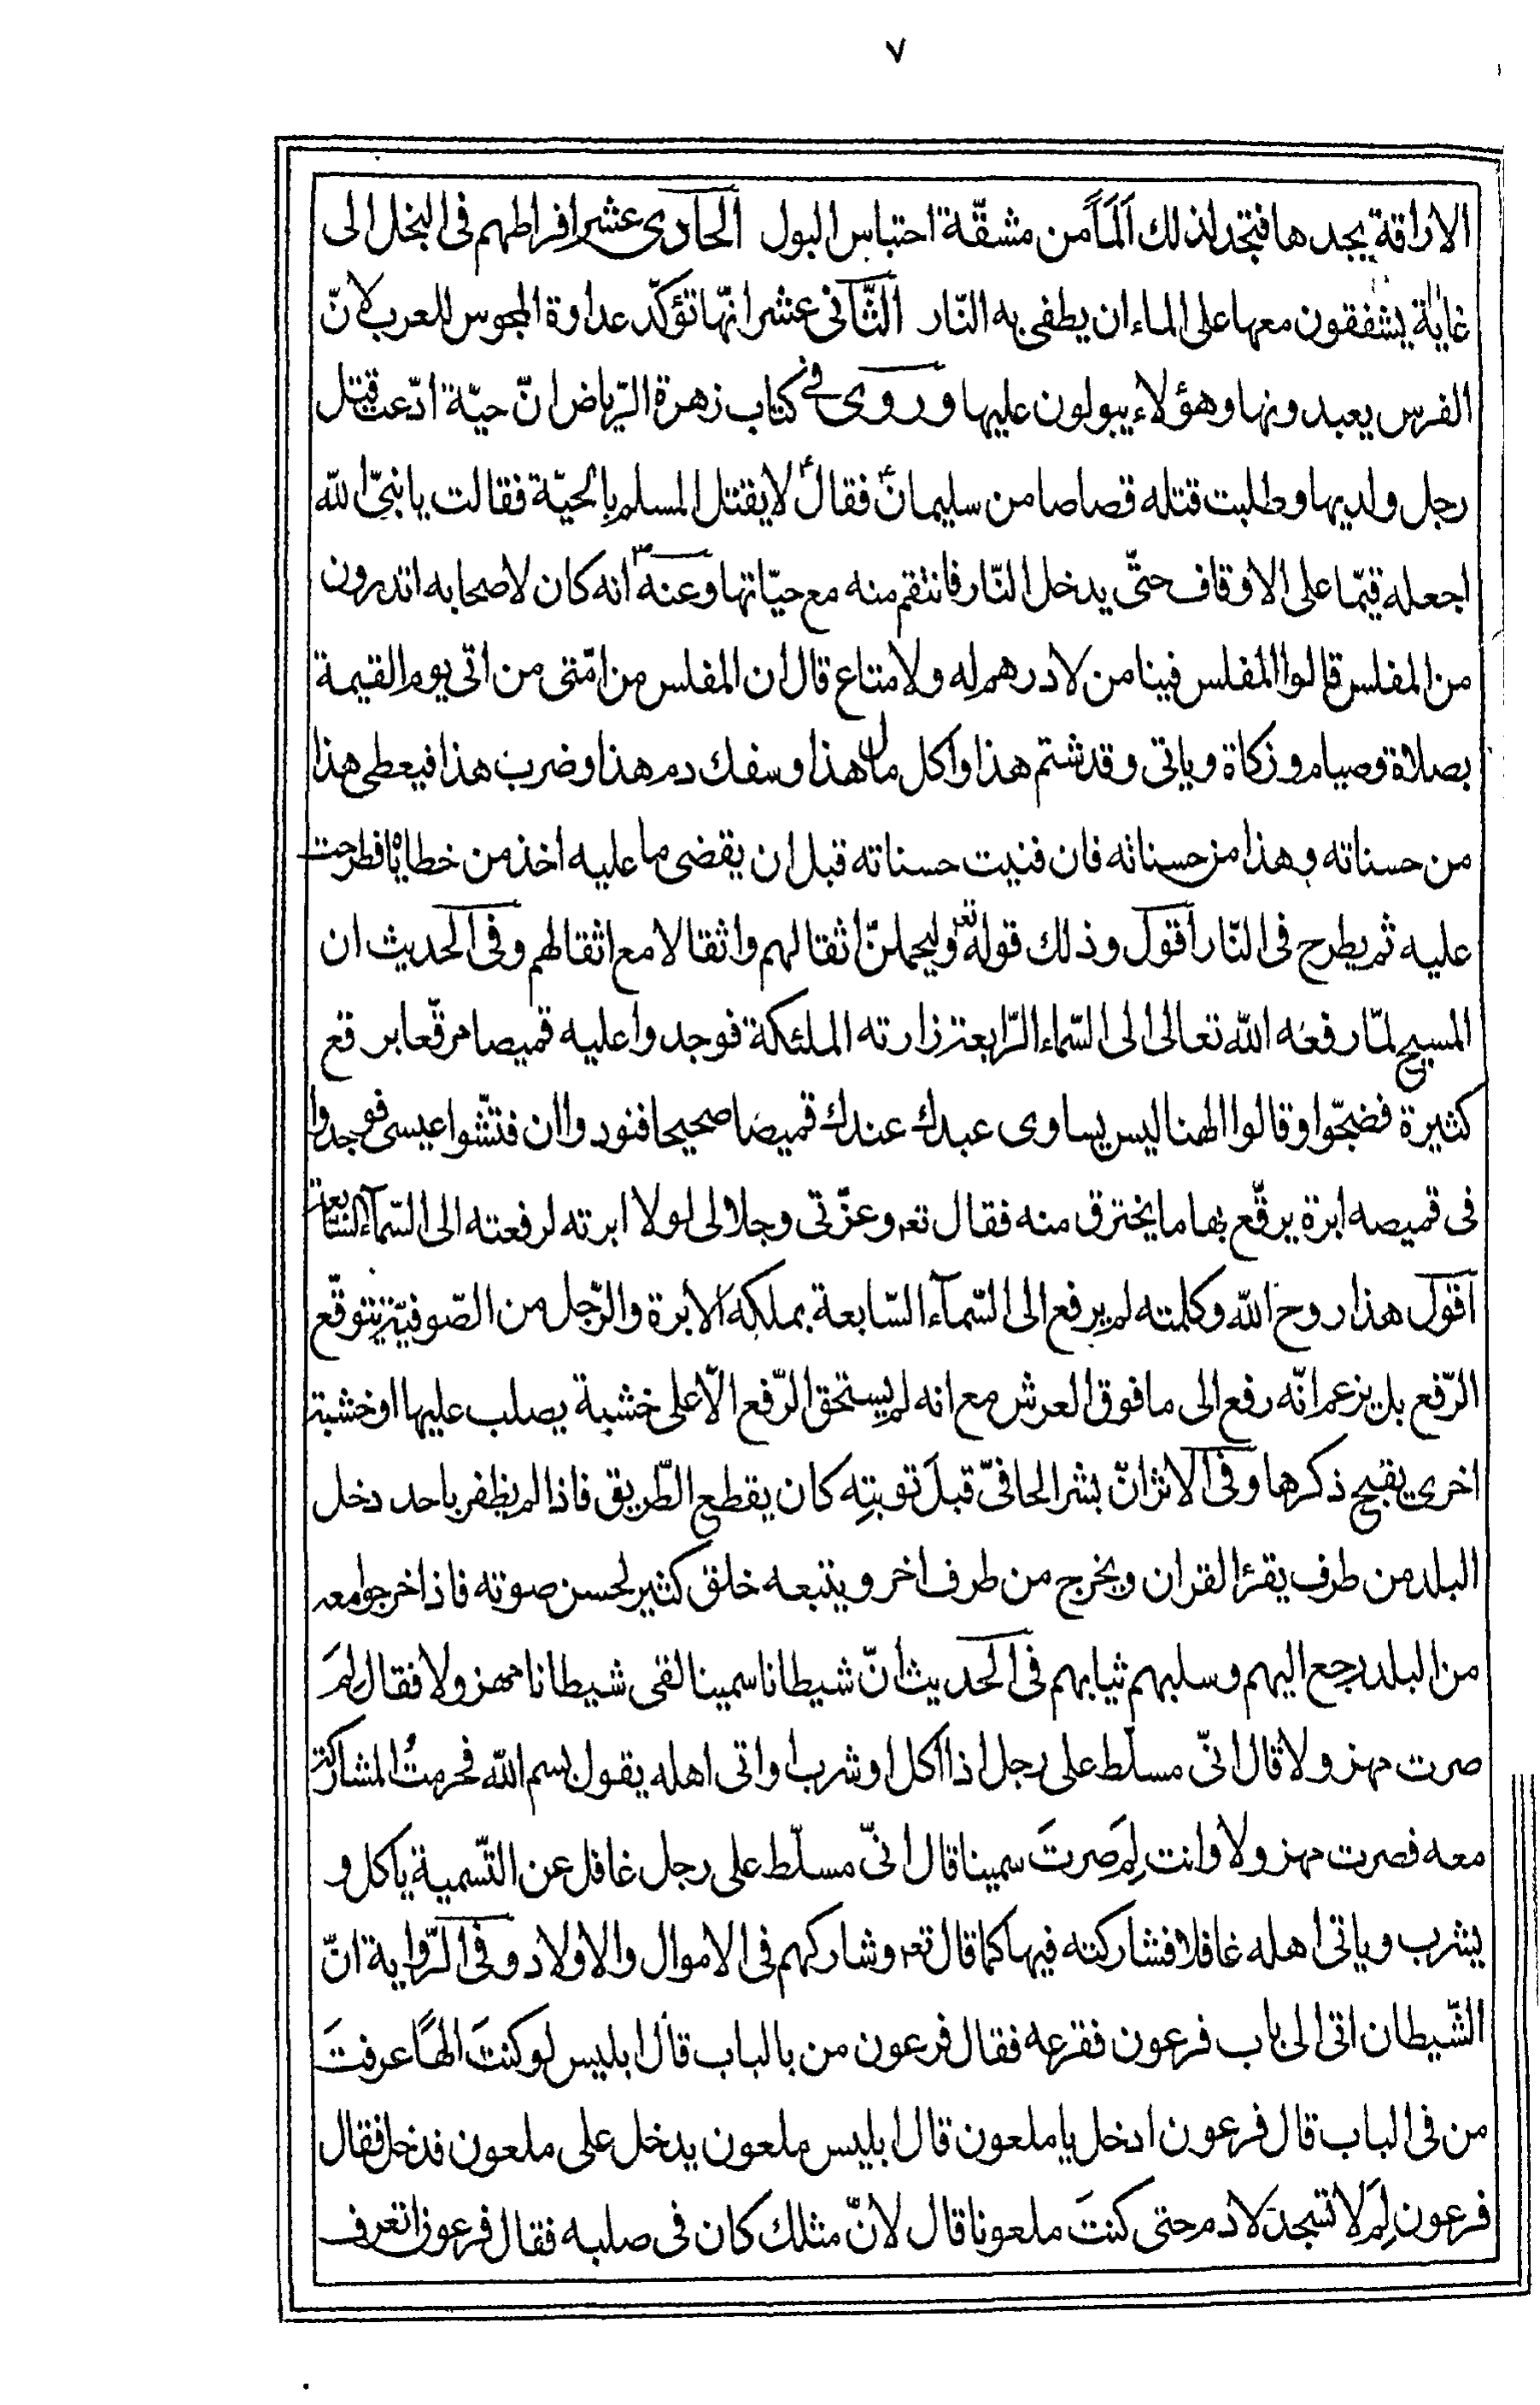 ٧
الاراقة يجدها فتجد لذلك اَلَمَاً من مشقّة احتباس البول الحادى عشر افراطهم فى البخل الى
غاية يشفقون معها على الماء ان يطفى به النّار الثّانى عشر انّها تؤكّد عداوة المجوس للعرب لانّ
الفرس يعبدونها وهؤلاء يبولون عليها وروى فى كتاب زهرة الرّياض انّ حيّة ادّعت قتل
رجل ولديها وطلبت قتله قصاصا من سليمان ع فقال ع لا يقتل المسلم بالحيّة فقالت يا نبىّ الله
اجعله قيّما على الاوقاف حتّى يدخل النّار فانتقم منه مع حيّاتها وعنه ص انه كان لاصحابه اتدرون
من المفلس قالوا المفلس فينا من لا درهم له ولا متاع قال ان المفلس من امّتى من اتى يوم القيمة
بصلاة وصيام وزكاة وياتى وقد شتم هذا واكل مال هذا وسفك دم هذا وضرب هذا فيعطى هذا
من حسناته وهذا من حسناته فان فنيت حسناته قبل ان يقضى ما عليه اخذ من خطاياه فطرحت
عليه ثم يطرح فى النّار اقول وذلك قوله تعر وليحملنّ اثقالهم واثقالا مع اثقالهم وفى الحديث ان
المسيح لمّا رفعه الله تعالى الى السّماء الرّابعة زارته الملئكة فوجدوا عليه قميصا مرقّعا برقع
كثيرة فضجّوا وقالوا الهنا ليس يساوى عبدك عندك قميصا صحيحا فنودوا ان فتّشوا عيسى فوجدوا
فى قميصه ابرة يرقّع بها ما يخترق منه فقال تعر وعزّتى وجلالى لولا ابرته لرفعته الى السّمآء السّابعة
اقول هذا روح الله وكلمته لم يرفع الى السّمآء السّابعة بملكه الابرة والرّجل من الصّوفيّة يتوقّع
الرّفع بل يزعم انّه رفع الى ما فوق العرش مع انه لم يستحق الرّفع الّا على خشبة يصلب عليها او خشبة
اخرى يقبح ذكرها وفى الاثر انّ بشر الحافىّ قبلَ توبتِه كان يقطع الطّريق فاذا لم يظفر باحد دخل
البلد من طرف يقرٔا القران ويخرج من طرف اخر ويتبعه خلق كثير لحسن صوته فاذا خرجوا معه
من البلد رجع اليهم وسلبهم ثيابهم فى الحديث انّ شيطانا سمينا لقى شيطانا مهزولا فقال لِمَ
صرت مهزولا قال انّى مسلّط على رجل اذا اكل او شرب او اتى اهله يقول بسم الله فحرمتُ المشاركة
معه فصرت مهزولا وانت لِمَ صرتَ سمينا قال انّى مسلّط على رجل غافل عن التّسمية ياكل و
يشرب وياتى اهله غافلا فشاركته فيها كما قال تعر وشاركهم فى الاموال والاولاد وفى الرّواية انّ
الشّيطان اتى الى باب فرعون فقرعه فقال فرعون من بالباب قال ابليس لو كنتَ الهًا عرفتَ
من فى الباب قال فرعون ادخل يا ملعون قال ابليس ملعون يدخل على ملعون فدخل فقال
فرعون لِمَ لا تسجد لادم حتى كنتَ ملعونا قال لانّ مثلك كان فى صلبه فقال فرعون اتعرف